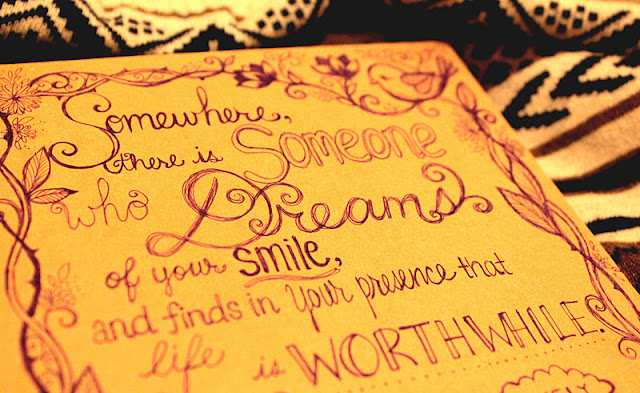 Somewhere,
there is Someone
who Dreams
of your smile,
and finds in your presence that
life is WORTHWHILE.